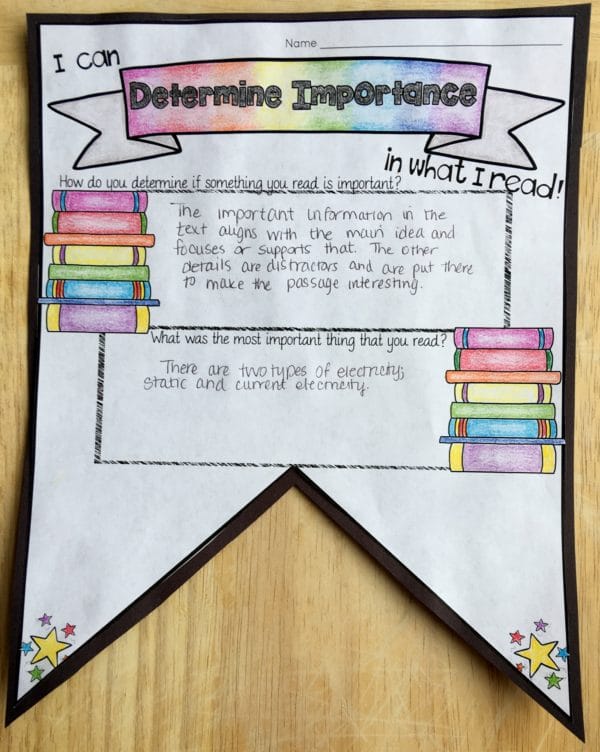 Name
I can
Determine Importance
in what I read!
How do you determine if something you read is important?
The important information in the
text aligns with the main idea and
focuses or supports that. The other
details are distractors and are put there
to make the passage interesting.
What was the most important thing that you read?
There are two types of electricity;
static and current electricity.